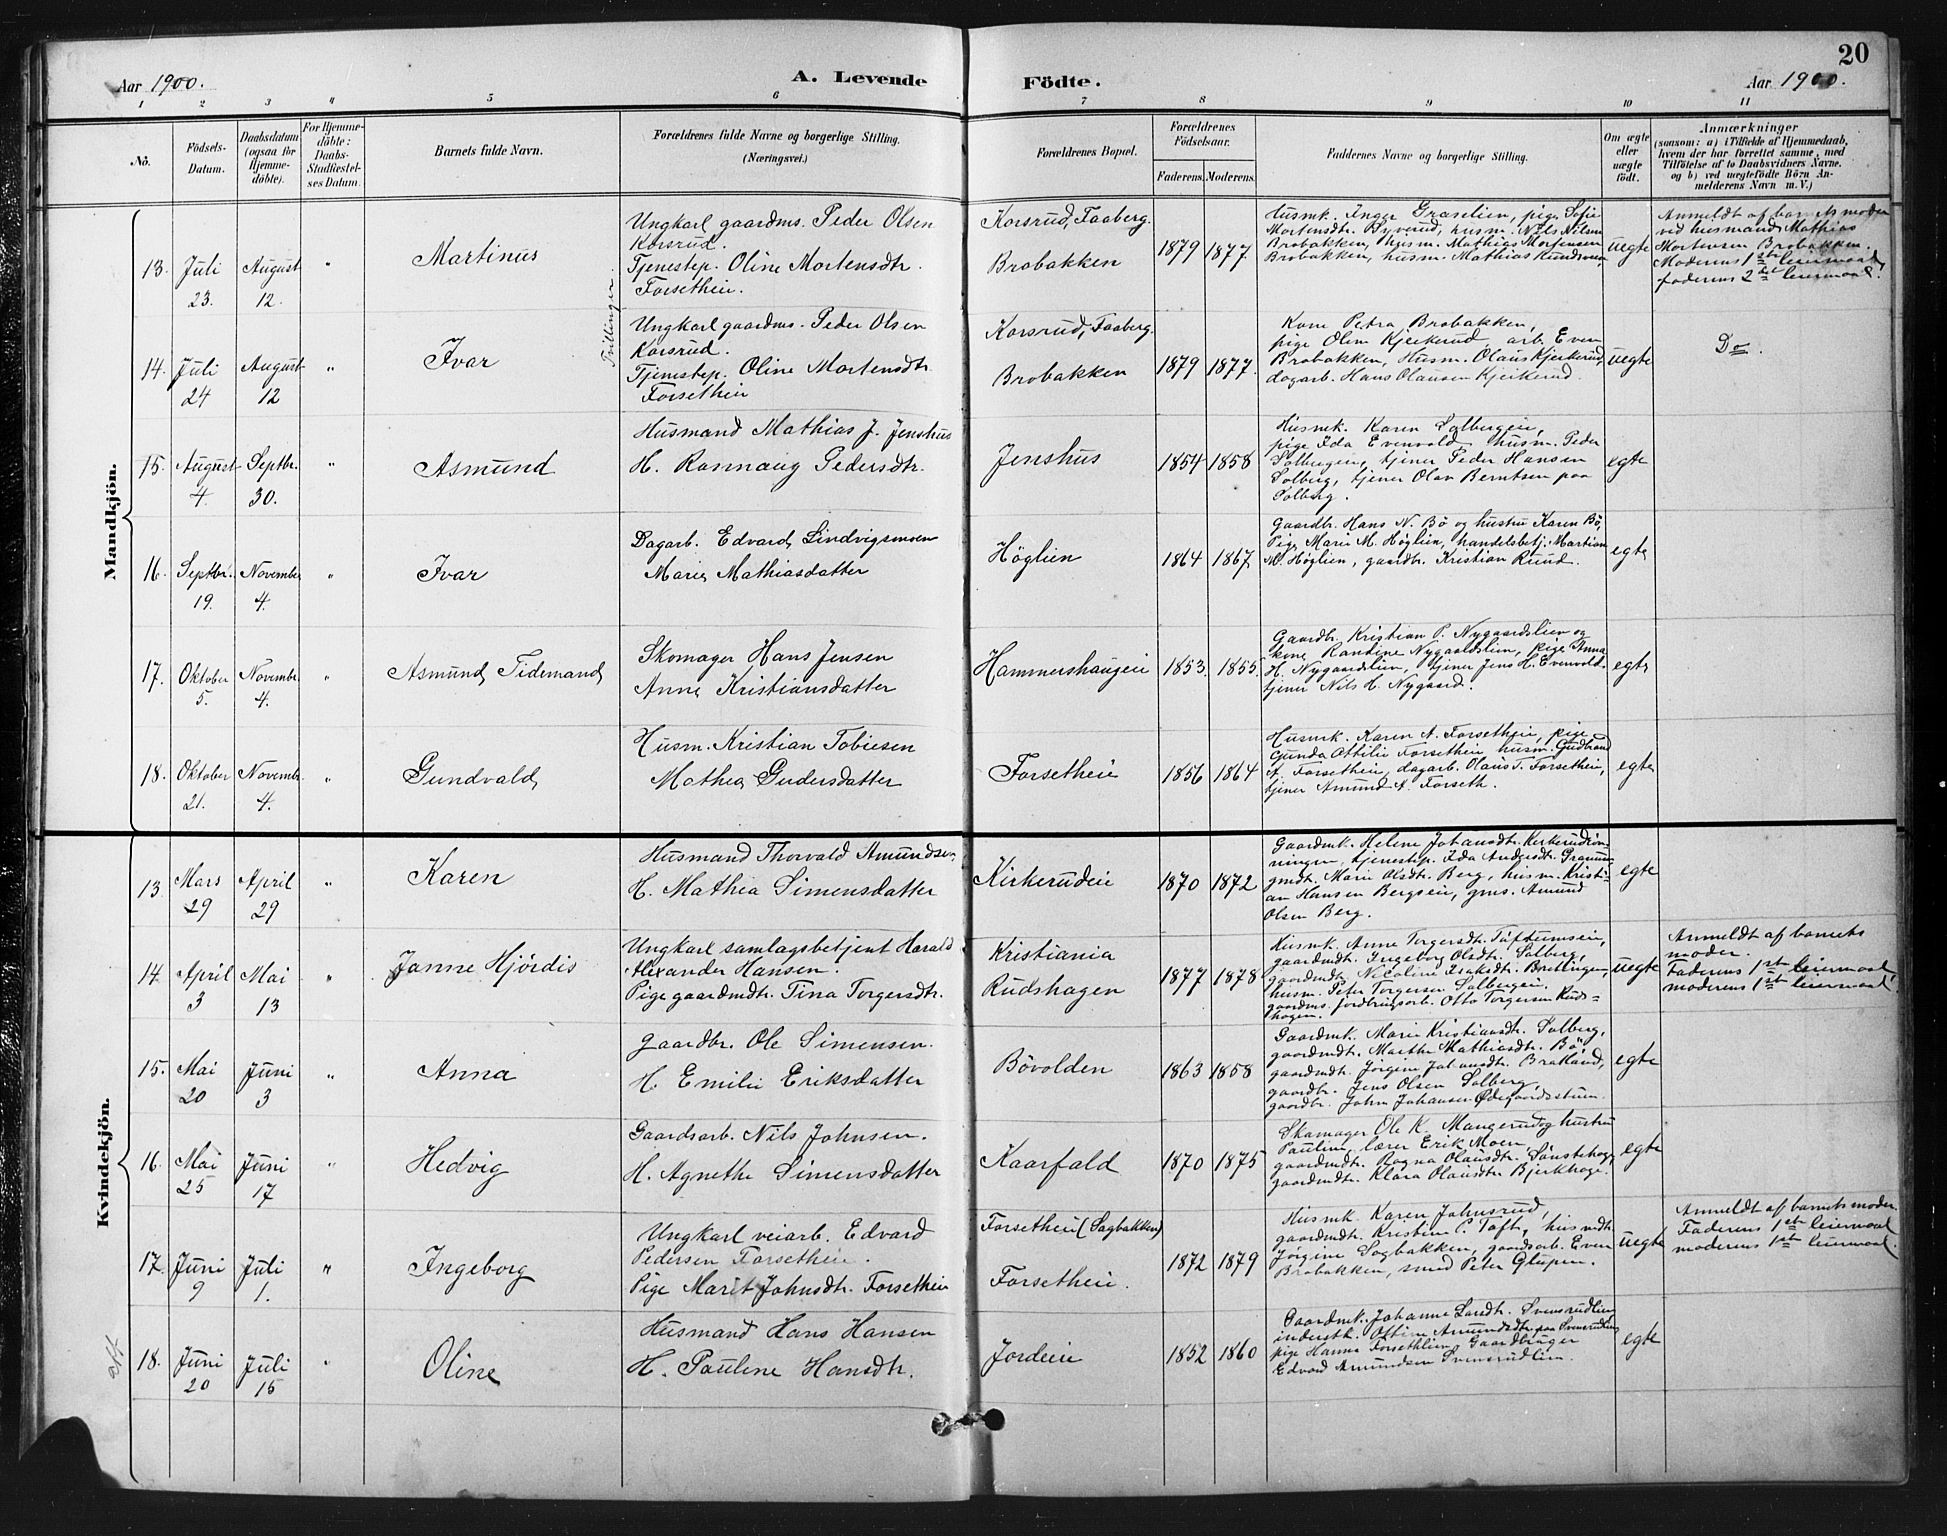 20
Aar 1900.
A. Levende
Födte.
Aar 1900.
1 2 3 4 5 6 7 8 9 10 11
No.
Födsels-
Datum.
Daabsdatum
(ogsaa for
Hjemme-
döbte).
For Hjemme-
döbte:
Daabs-
Stadfæstel-
ses Datum.
Barnets fulde Navn.
Forældrenes fulde Navne og borgerlige Stilling.
(Næringsvei.)
Forældrenes Bopæl.
Forældrenes
Födselsaar.
Faderens. Moderens.
Faddernes Navne og borgerlige Stilling.
Om ægte
eller
uægte
födt.
Anmærkninger
(saasom: a) i Tilfælde af Hjemmedaab,
hvem der har forrettet samme, med
Tilföielse af to Daabsvidners Navne.
og b) ved uægtefödte Börn An-
melderens Navn m. V.)
Mandkjön.
13. Juli 23. August 12. " Martinus
Ungkarl gaardms. Peder Olsen
Korsrud.
Tjenestep. Oline Mortensdtr.
Forsetheie.
Korsrud, Faaberg.
Brobakken
1879 1877
Husmk. Inger Graselien, pige Sofie
Mortensdtr. Byverud, husm. Nils Nilsen
Brobakken, husm. Mathias Mortensen
Brobakken, husm. Mathias Knudsveen
uegte
Anmeldt af barnets moder
ved husmand Mathias
Mortensen Brobakken.
Moderens 1ste leiermaal,
faderens 2det leiermaal.
Tvillinger
14. Juli 24 August 12 " Ivar
Ungkarl gaardms. Peder Olsen
Korsrud.
Tjenestep. Oline Mortensdtr.
Forsetheie
Korsrud, Faaberg.
Brobakken
1879 1877.
Kone Petra Brobakken,
pige Oline Kjerkerud, arb. Even
Brobakken, Husm. Olaus Kjerkerud,
dagarb. Hans Olausen Kjerkerud.
uegte
Do.
15. August 4. Septbr. 30. " Asmund
Husmand Mathias J. Jenshus
H. Rannaug Pedersdtr.
Jenshus
1854 1858
Husmk. Karen Solbergeie,
pige Ida Evenvold, husm. Peder
Solbergeie, tjener Peder Hansen
Solberg, tjener Olav Berntsen paa
Solberg.
egte
16. Septbr. 19. November 4. " Ivar
Dagarb. Edvard Lindvigsmoen
Marie Mathiasdatter
Höglien
1864 1867
Gaardbr. Hans N. Bö og hustru Karen Bö,
Pige Marie M. Höglien, handelsbetj. Martian
M. Höglien, gaardbr. Kristian Ruud.
egte
17. Oktober 5. Novembr. 4. " Asmund Tidemand
Skomager Hans Jensen
Anne Kristiansdatter
Hammershaugeie
1853. 1855.
Gaardbr. Kristian P. Nygaardslien og
kone Randine Nygaardslien, pige Anna
H. Nygaardslien, tjener Jens H. Evenvold,
tjener Nils H. Nygaard.
egte
18. Oktober 21. Novembr. 4. " Gundvald
Husm. Kristian Tobiesen
Mathea Gudersdatter
Forsetheie
1856 1864
Husmk. Karen A. Forsetheie, pige
Gunda Attilie Forsetheie, husm. Gudbrand
A. Forsetheie, dagarb. Olaus T. Forsetheie,
tjener Amund A. Forseth.
egte
Kvindekjön.
13. Mars 29 April 29 " Karen
Husmand Thorvald Amundsen
H. Mathea Simensdatter
Kirkerudeie
1870 1872
Gaardmk. Helene Johansdtr. Kerkerudion-
ningen, tjenestep. Ida Andersdtr.
gmdt. Marie Olsdtr. Berg, husm. Kristi-
an Hansen Bergseie, gms. Amund
Olsen Berg.
egte
14. April 3 Mai 13 " Janne Hjördis
Ungkarl samlagsbetjent Harald
Alexander Hansen.
Pige gaardmdtr. Tina Torgersdtr.
Kristiania
Rudshagen
1877 1878
Husmk. Anne Torgersdtr. Toftumseie,
gaardmdt. Ingeborg Olsdtr. Solberg,
gaardmdt. Nicoline Isaksdtr. Brettingen,
husm. Peter Torgersen Solbergeie.
gaardms. jordbrugsarb. Otto Torgersen Ruds-
hagen.
uegte
Anmeldt af barnets
moder.
Faderens 1ste leiermaal,
moderens 1ste leiermaal.
15. Mai 20 Juni 3 " Anna
Gaardbr. Ole Simensen.
H. Emilie Eriksdatter
Bövolden
1863 1858
Gaardmk. Marie Kristiansdtr. Solberg,
gaardmdt. Marthe Mathiasdtr. Bö,
gaardmdt. Jörgine Johansdtr. Bratland,
gaardbr. Jens Olsen Solberg,
gaardbr. John Johansen Ödegaardsstuen.
egte
16. Mai 25 Juni 17 " Hedvig
Gaardsarb. Nils Johnsen.
H. Agnethe Simensdatter
Kaarfald
1870 1875
Skomager Ole K. Mangerud og hustru
Pauline, lærer Erik Moen,
gaardmdt. Ragna Olausdtr. Sönstehage,
gaardmdt. Klara Olausdtr. Bjerkhage.
egte
17. Juni 9 Juli 1. " Ingeborg
Ungkarl veiarb. Edvard
Pedersen Forsetheie.
Pige Marit Johnsdtr. Forsetheie
Forsetheie (Sagbakken)
Forsetheie.
1872 1879
Husmk. Karen Johnsrud,
gaardmdt. Kristine C. Toft, husmdt.
Jörgine Sagbakken, gaardsarb. Even
Brobakken, smed Peter Glupen.
uegte
Anmeldt af barnets moder.
Faderens 1ste leiermaal
moderens 1ste leiermaal.
18. Juni 20 Juli 15 " Oline
Husmand Hans Hansen
H. Pauline Hansdtr.
Jordeie
1852 1860
Gaardmk. Johanne Larsdtr. Svensrudlien
inderstk. Oline Amundsdtr. paa Svensrudlien
pige Hanna Forsethlien, Gaardbruger
Edvard Amundsen Svensrudlien.
egte